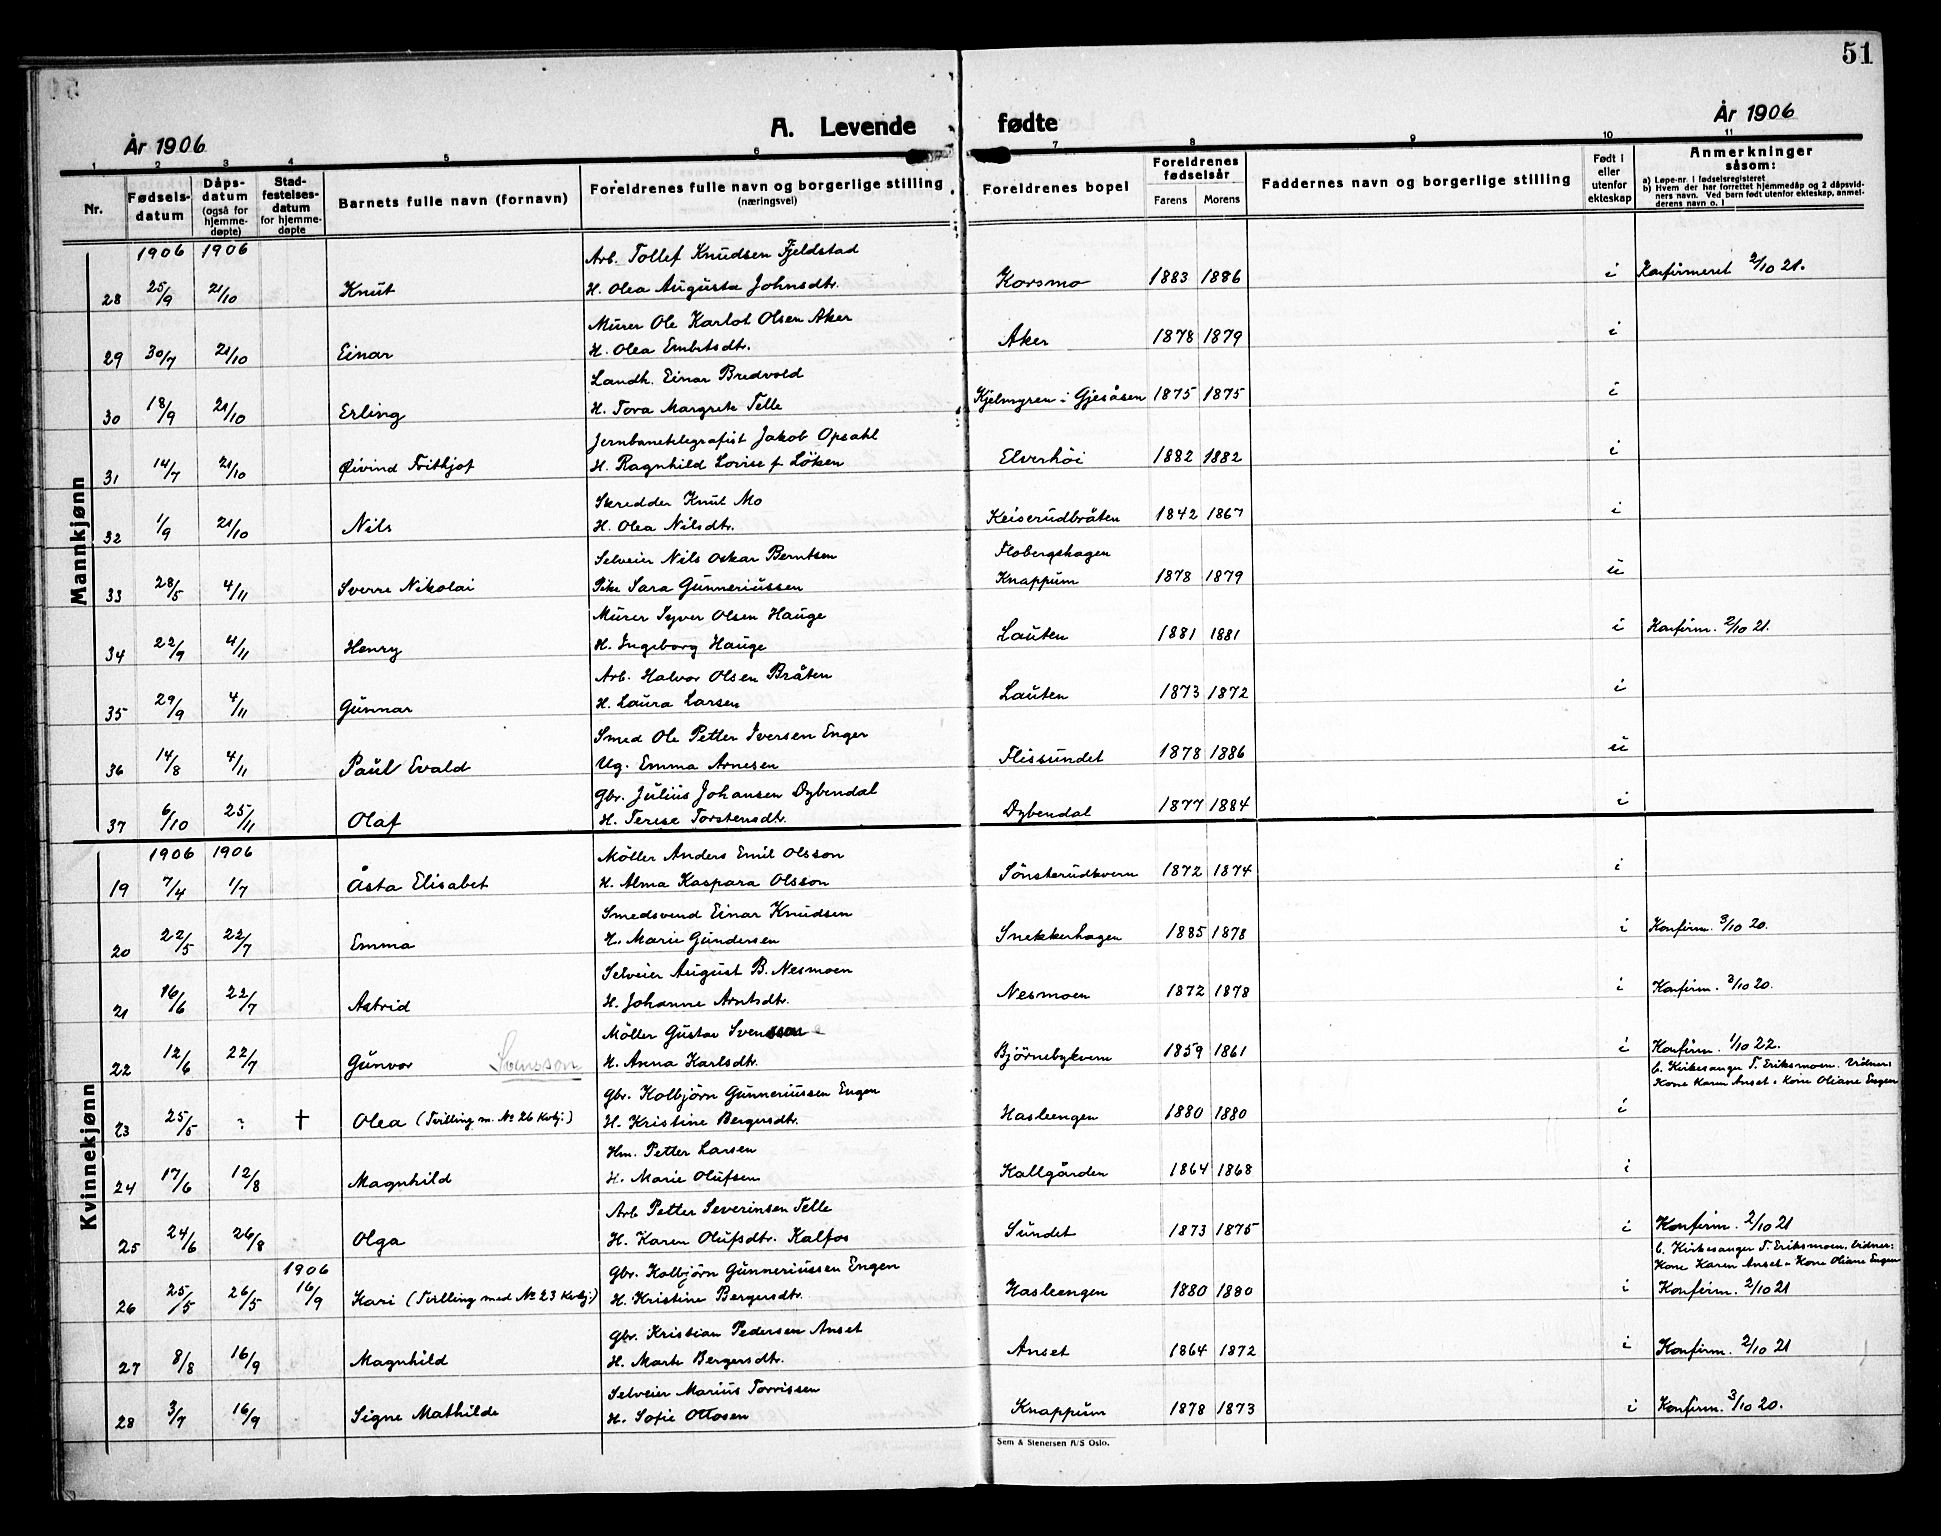 51
År 1906
A. Levende fødte
År 1906
1 2 3 4 5 6 7 8 9 10 11
Nr.
Fødsels-datum
Dåps-datum (også for hjemme-døpte)
Stad-festelses-datum for hjemme-døpte
Barnets fulle navn (fornavn)
Foreldrenes fulle navn og borgerlige stilling (næringsvei)
Foreldrenes bopel
Foreldrenes fødselsår
Farens Morens
Faddernes navn og borgerlige stilling
Født i eller utenfor ekteskap
Anmerkninger såsom:
a) Løpe-nr. i fødselsregisteret
b) Hvem der har forrettet hjemmedåp og 2 dåpsvid-
ners navn. Ved barn født utenfor ekteskap, anmel-
derens navn o. l
Mannkjønn
1906 1906 Arb. Tollef Knudsen Fjeldstad
28 25/9 21/10 Knut H. Olea Augusta Johnsdtr. Korsmo 1883 1886 i Konfirmeret 2/10 21.
Murer Ole Karlot Olsen Aker
29 30/7 21/10 Einar H. Olea Embrtsdtr. Aker 1878 1879 i
Landh. Einar Bredvold
30 18/9 21/10 Erling H. Tova Margrete Telle Kjelmyren i Gjesåsen 1875 1875 i
Jernbanetelegrafist Jakob Opsahl
31 14/7 21/10 Øivind Frithjof H. Ragnhild Lovise f. Löken Elverhöi 1882 1882 i
Skredder Knut Mo
32 1/9 21/10 Nils H. Olea Nilsdtr. Keiserudbråten 1842 1867 i
Selveier Nils Oskar Berntsen Flobergshagen
33 28/5 4/11 Sverre Nikolai Pike Sara Gunneriussen Knappum 1878 1879 u
Murer Syver Olsen Hauge
34 22/9 4/11 Henry H. Ingeborg Hauge Lauten 1881 1881 i Konfirm. 2/10 21.
Arb. Halvor Olsen Bråten
35 29/9 4/11 Gunnar H. Laura Larsen Lauten 1873 1872 i
Smed Ole Petter Iversen Enger
36 14/8 4/11 Paul Evald Ug. Emma Arnesen Flissundet 1878 1886 u
Gbr. Julius Johansen Dybendal
37 6/10 25/11 Olaf H. Terese Torstensdtr. Dybendal 1877 1884 i
Kvinnekjønn
1906 1906 Möller Anders Emil Olsson
19 7/4 1/7 Åsta Elisabet H. Alma Kaspara Olsson Sönsterudkvern 1872 1874 i
Smedsvend Einar Knudsen
20 22/5 22/7 Emma H. Marie Gundersen Snekkerhagen 1885 1878 i Konfirm. 3/10 20.
Selveier August B. Nesmoen
21 16/6 22/7 Astrid H. Johanne Arntsdtr. Nesmoen 1872 1878 i Konfirm. 3/10 20.
Möller Gustav Svensson
22 12/6 22/7 Gunvor Svensson H. Anna Karlsdtr. Björnebykvern 1859 1861 i Konfirm. 1/10 22.
b. Kirkesanger T. Eriksmoen. Vidner:
Kone Karen Anset o Kone Oliane Engen
Gbr. Kolbjörn Gunneriussen Engen
23 25/5 ? † Olea (Tvilling m. No 26 Kvkj.) H. Kristine Bergersdtr. Hasleengen 1880 1880 i
Hm. Petter Larsen
24 17/6 12/8 Magnhild H. Marie Olufsen Kallgården 1864 1868 i
Arb. Petter Severinsen Telle
25 24/6 26/8 Olga H. Karen Olufsdtr. Kalfos Sundet 1873 1875 i Konfirm. 2/10 21
b. Kirkesanger T. Eriksmoen. Vidner:
Kone Karen Anset o Kone Oliane Engen
1906 Gbr. Kolbjörn Gunneriussen Engen
26 25/5 26/5 16/9 Kari (Tvilling med No 23 Kvkj.) H. Kristine Bergersdtr. Hasleengen 1880 1880 i Konfirm. 2/10 21
Gbr. Kristian Pedersen Anset
27 8/8 16/9 Magnhild H. Marte Bergersdtr. Anset 1864 1872 i Konfirm. 2/10 21
Selveier Marius Torrissen
28 3/7 16/9 Signe Mathilde H. Sofie Ottosen Knappum 1878 1873 i Konfirm. 3/10 20.
Sem & Stenersen A/S Oslo.